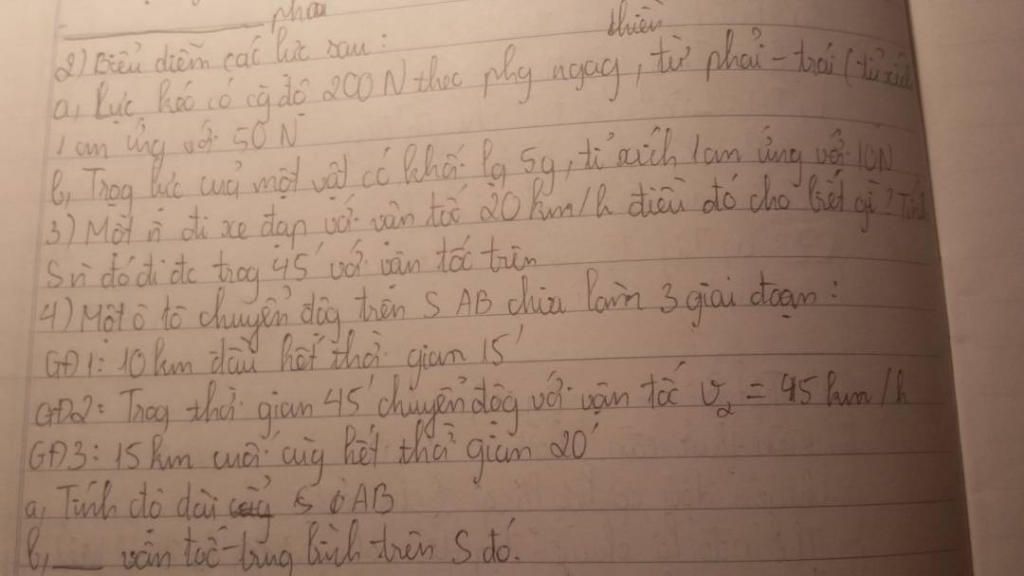 phải
2) Biểu diễn các lực sau: thiền
a, Lực kéo có cg độ 200 N theo phg ngag, từ phải - trái (tỉ xích
1 cm ứng với 50 N
b, Trọg lực cuả một vật có khối lg 5g, tỉ xích 1 cm ứng với 10N
3) Một n đi xe đạp với vận tốc 20 km/h điều đó cho biết gì? Tính
S n đó đi đc trog 45' với vận tốc trên
4) Một ô tô chuyển độg trên S AB chia làm 3 giai đoạn:
GĐ1: 10 km đầu hết thời gian 15'
GĐ2: Trog thời gian 45' chuyển độg với vận tốc v2 = 45 km/h
GĐ3: 15 km cuối cùg hết thời gian 20'
a, Tính độ dài S AB
b, __ vận tốc trung bình trên S đó.